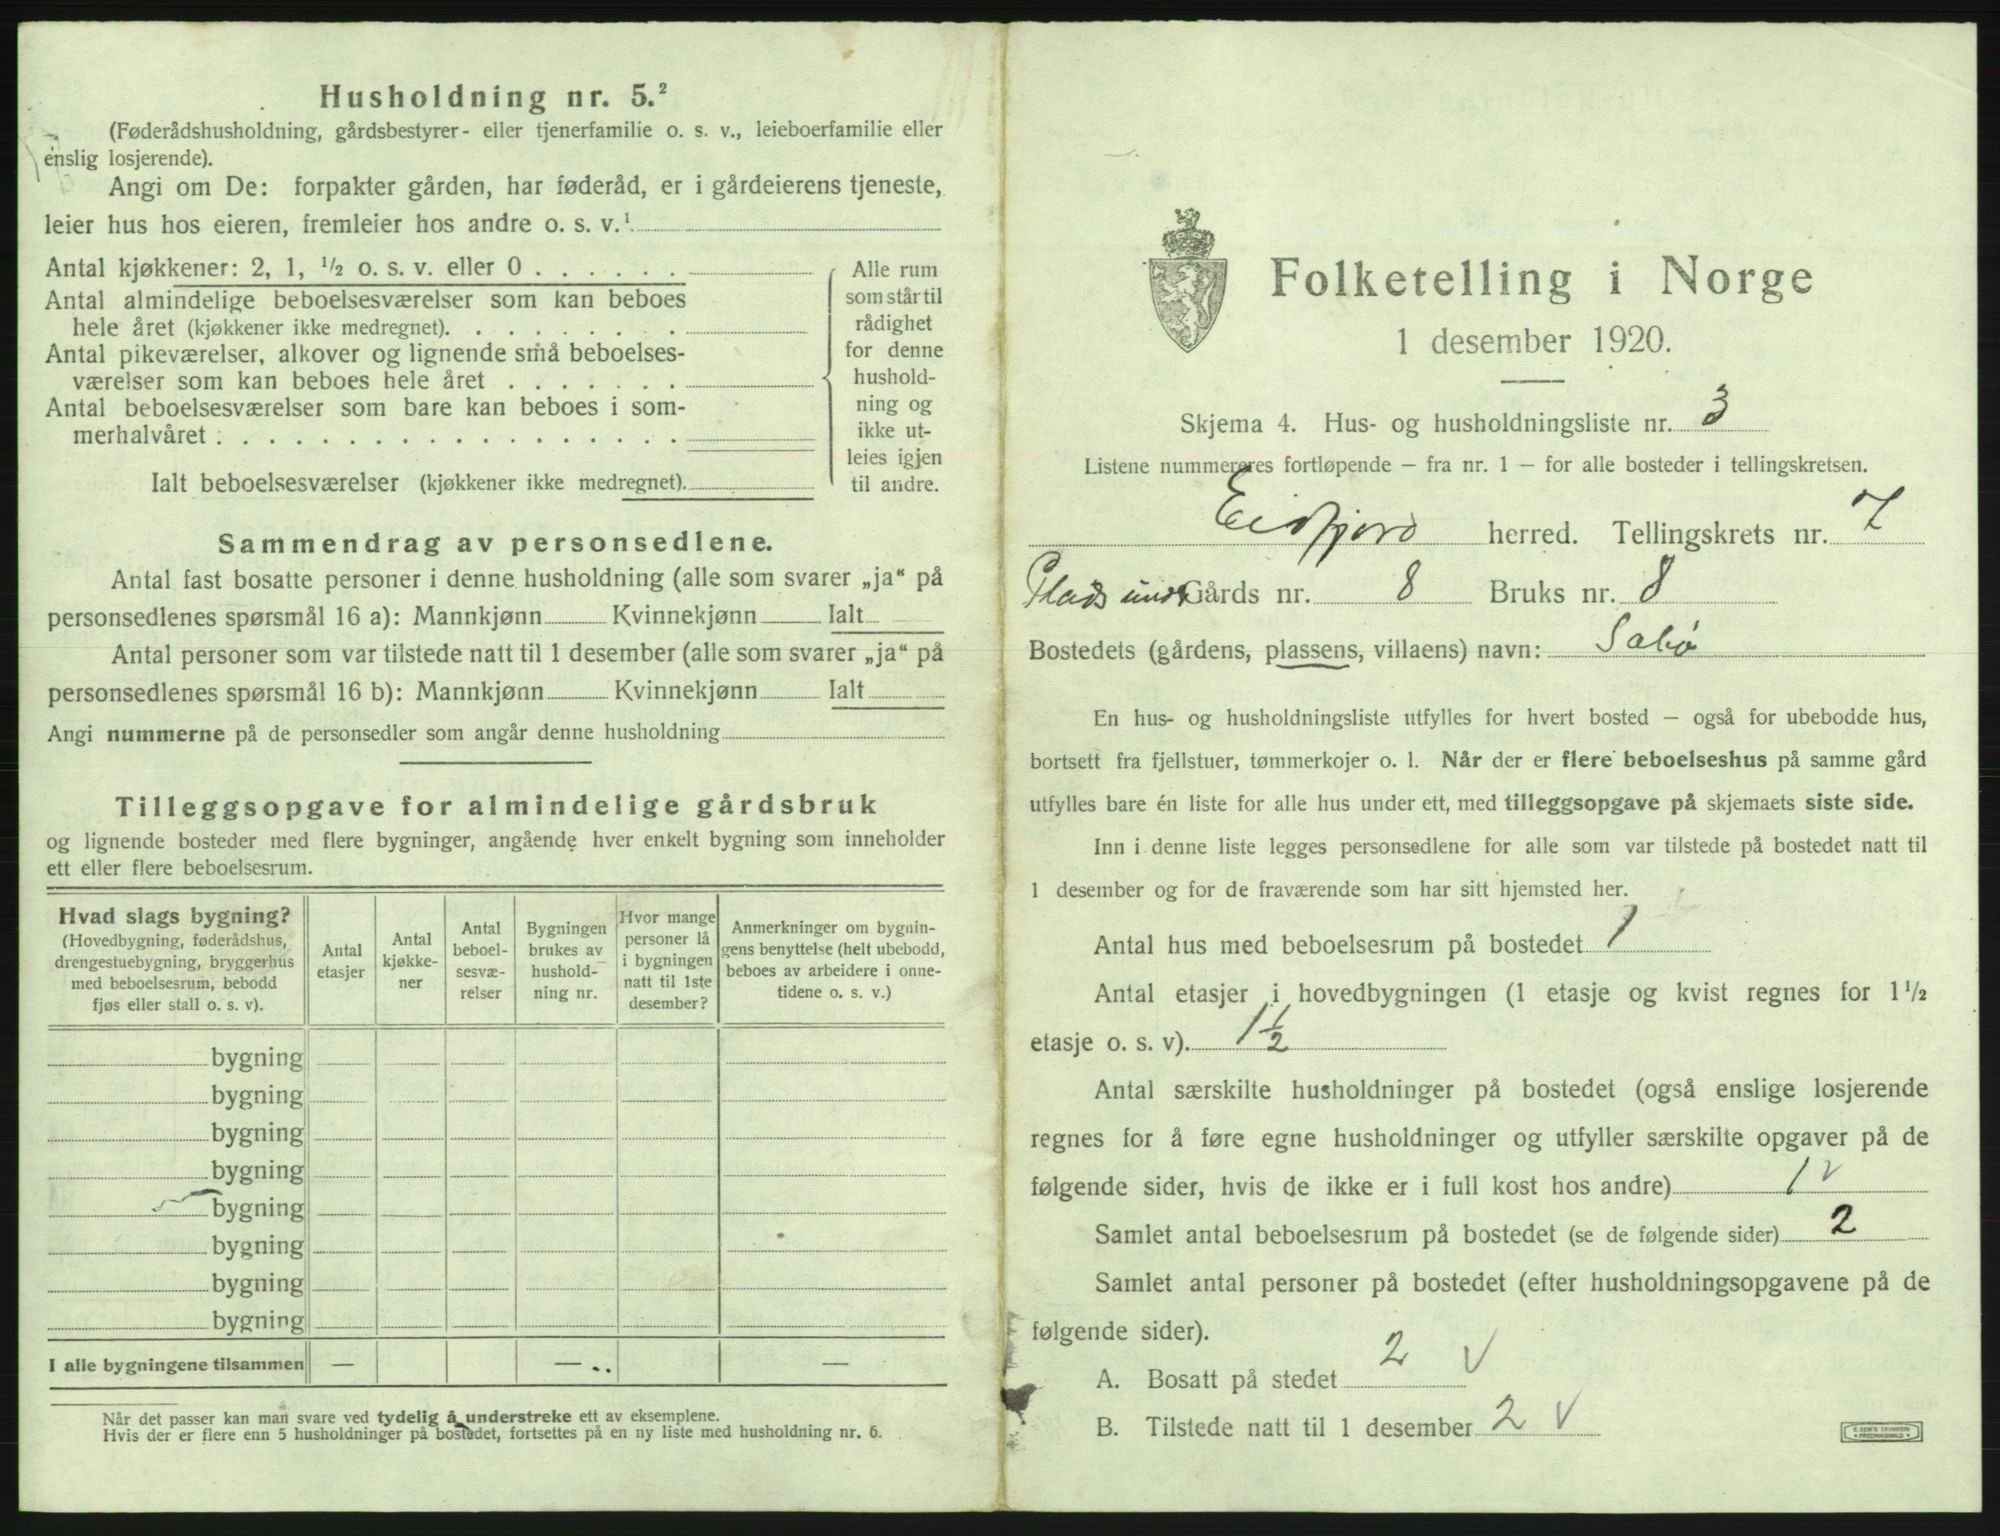 Husholdning nr. 5.²
(Føderådshusholdning, gårdsbestyrer- eller tjenerfamilie o. s. v., leieboerfamilie eller
enslig losjerende).
Angi om De: forpakter gården, har føderåd, er i gårdeierens tjeneste,
leier hus hos eieren, fremleier hos andre o. s. v.¹
Antal kjøkkener: 2, 1, ½ o. s. v. eller 0 . . . . . .
Antal almindelige beboelsesværelser som kan beboes
hele året (kjøkkener ikke medregnet). . . . . . . . .
Antal pikeværelser, alkover og lignende små beboelses-
værelser som kan beboes hele året . . . . . . .
Antal beboelsesværelser som bare kan beboes i som-
merhalvåret . . . . . . . . . . . . . . . . . .
Ialt beboelsesværelser (kjøkkener ikke medregnet).
Alle rum
som står til
rådighet
for denne
hushold-
ning og
ikke ut-
leies igjen
til andre.
Sammendrag av personsedlene.
Antal fast bosatte personer i denne husholdning (alle som svarer „ja“ på
personsedlenes spørsmål 16 a): Mannkjønn Kvinnekjønn Ialt
Antal personer som var tilstede natt til 1 desember (alle som svarer „ja“ på
personsedlenes spørsmål 16 b): Mannkjønn Kvinnekjønn Ialt
Angi nummerne på de personsedler som angår denne husholdning
Tilleggsopgave for almindelige gårdsbruk
og lignende bosteder med flere bygninger, angående hver enkelt bygning som inneholder
ett eller flere beboelsesrum.
Hvad slags bygning?
(Hovedbygning, føderådshus,
drengestuebygning, bryggerhus
med beboelsesrum, bebodd
fjøs eller stall o. s. v).
Antal
etasjer
Antal
kjøkke-
ner
Antal
beboel-
sesvæ-
relser
Bygningen
brukes av
hushold-
ning nr.
Hvor mange
personer lå
i bygningen
natt til 1ste
desember?
Anmerkninger om bygnin-
gens benyttelse (helt ubebodd,
beboes av arbeidere i onne-
tidene o. s. v.)
bygning
bygning
bygning
bygning
bygning
bygning
bygning
bygning
I alle bygningene tilsammen — — —
Når det passer kan man svare ved tydelig å understreke ett av eksemplene.
Hvis der er flere enn 5 husholdninger på bostedet, fortsettes på en ny liste med husholdning nr. 6.
Folketelling i Norge
1 desember 1920.
Skjema 4. Hus- og husholdningsliste nr. 3
Listene nummereres fortløpende – fra nr. 1 – for alle bosteder i tellingskretsen.
Eidfjord herred. Tellingskrets nr. 7
Plads under Gårds nr. 8 Bruks nr. 8
Bostedets (gårdens, plassens, villaens) navn: Sabø
En hus- og husholdningsliste utfylles for hvert bosted – også for ubebodde hus,
bortsett fra fjellstuer, tømmerkojer o. l. Når der er flere beboelseshus på samme gård
utfylles bare én liste for alle hus under ett, med tilleggsopgave på skjemaets siste side.
Inn i denne liste legges personsedlene for alle som var tilstede på bostedet natt til
1 desember og for de fraværende som har sitt hjemsted her.
Antal hus med beboelsesrum på bostedet 1
Antal etasjer i hovedbygningen (1 etasje og kvist regnes for 1½
etasje o. s. v). 1½
Antal særskilte husholdninger på bostedet (også enslige losjerende
regnes for å føre egne husholdninger og utfyller særskilte opgaver på de
følgende sider, hvis de ikke er i full kost hos andre) 1 v
Samlet antal beboelsesrum på bostedet (se de følgende sider) 2
Samlet antal personer på bostedet (efter husholdningsopgavene på de
følgende sider).
A. Bosatt på stedet 2 v
B. Tilstede natt til 1 desember 2 v